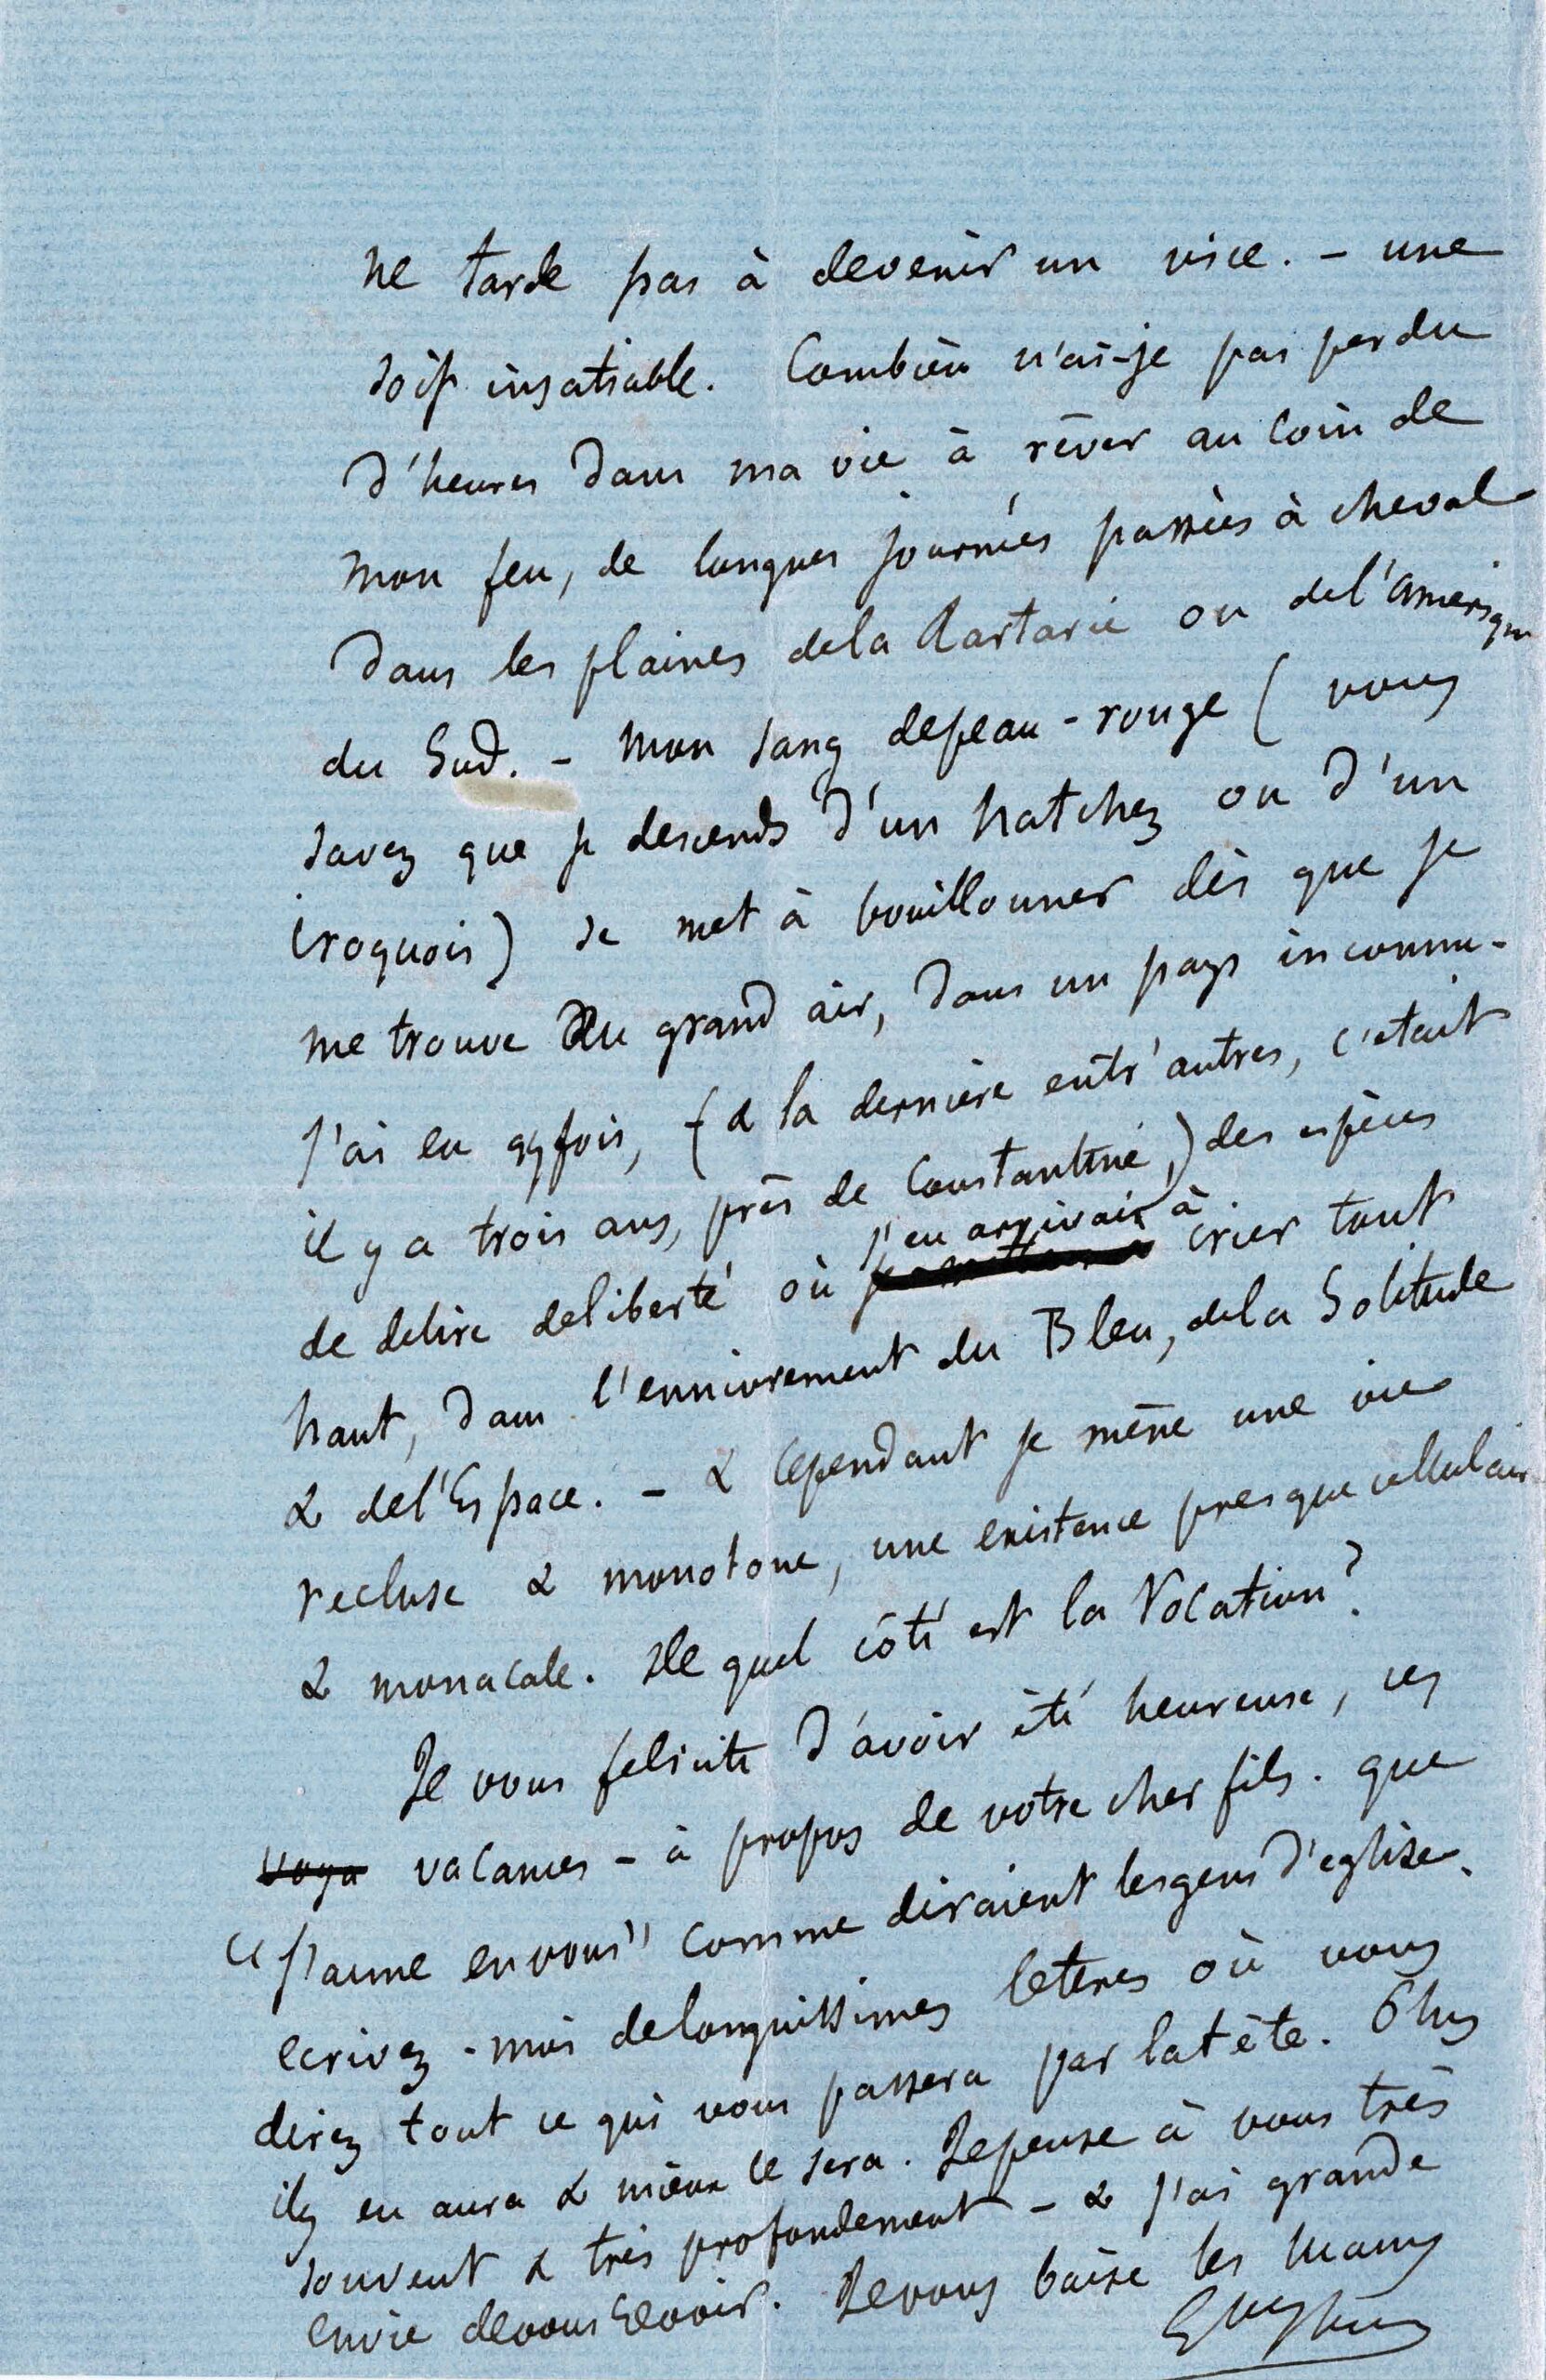 ne tarde pas à devenir un vice. – une
soif insatiable. Combien n'ai-je pas perdu
d'heures dans ma vie à rêver au coin de
mon feu, de longues journées passées à cheval
dans les plaines de la Tartarie ou de l'Amérique
du Sud. – mon sang de peau-rouge (vous
savez que je descends d'un natchez ou d'un
iroquois) se met à bouillonner dès que je
me trouve au grand air, dans un pays inconnu –
J'ai eu qqfois, (& la dernière entr'autres, c'était
il y a trois ans, près de Constantine,) des espèces
de delire de liberté où j'en arrivais à crier tout
haut, dans l'ennivrement du Bleu, de la Solitude
& de l'Espace. – & cependant je mène une vie
recluse & monotone, une existence presque cellulaire
& monacale. De quel côté est la Vocation?
Je vous felicite d'avoir été heureuse, ces
voya vacances – à propos de votre cher fils. que
"j'aime en vous" comme diraient les gens d'eglise.
ecrivez-moi de longuissimes letres où vous
direz tout ce qui vous passera par la tête. Plus
il y en aura & mieux ce sera. Je pense à vous très
souvent & très profondement – & j'ai grande
envie de vous revoir. Je vous baise les mains